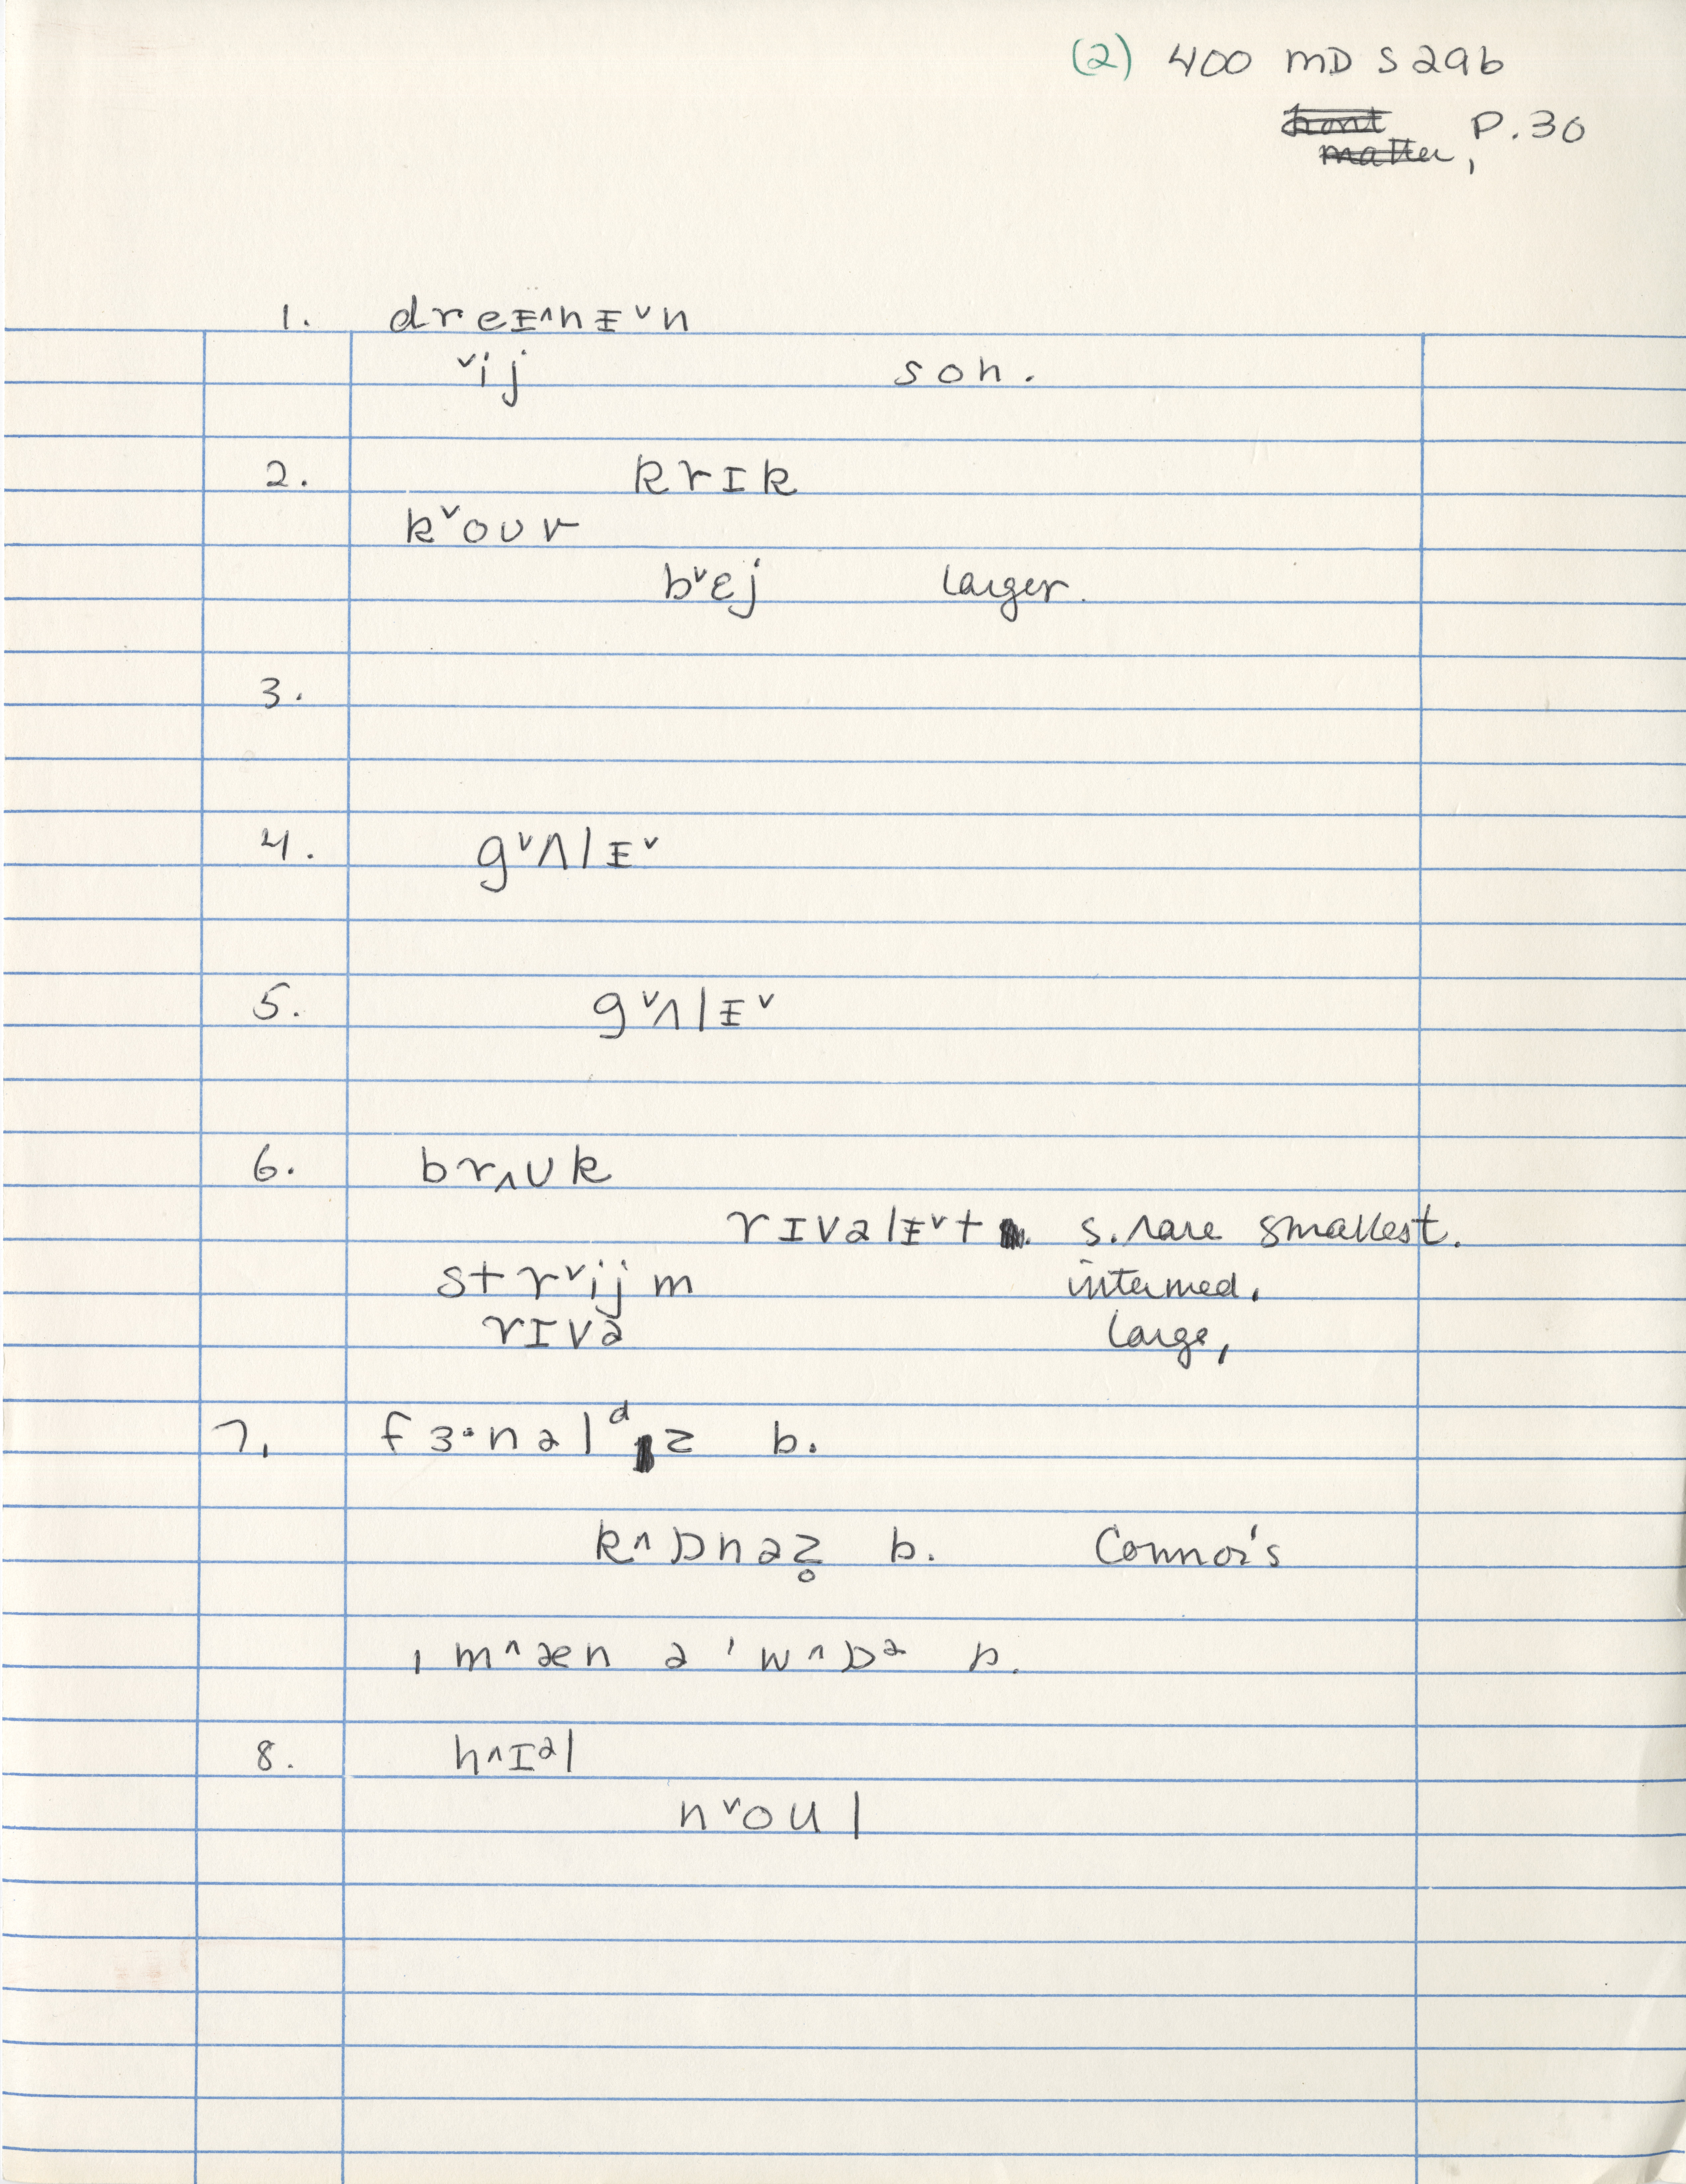 (2) 400 MD S 29b
front matter, P. 30
1. dreɪ^nɪˇn
ˇij son.
2. krɪk
kˇoʊr
bˇɛj larger.
3.
4. gˇʌlɪˇ
5. gˇʌlɪˇ
6. brʌʊk
rɪvəlɪˇt s. rare smallest.
strˇijm intermed.
rɪvə large,
7. fɜ·nəlᵈz b.
k^ɒnəz̥ b. Connor's
ˌm^æn ə ˈw^ɒᵊ b.
8. h^ɪᵊl
nˇoʊl